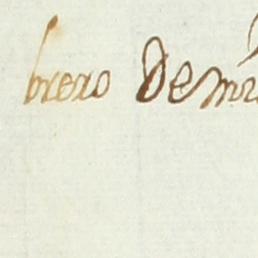 brero de mi